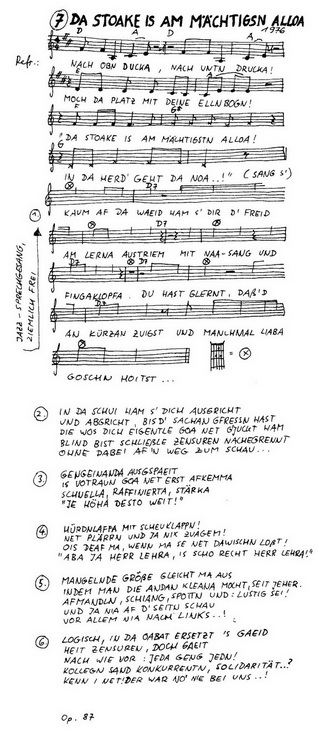 7 DA STOAKE IS AM MÄCHTIGSN ALLOA
1976
D A D A
Refr.:
NACH OBN DUCKA, NACH UNTN DRUCKA!
E A E
MOCH DA PLATZ MIT DEINE ELLNBOGN!
F
"DA STOAKE IS AM MÄCHTIGSTN ALLOA!
G
IN DA HERD' GEHT DA NOA..!" (SANG S')
D7
1. KAUM AF DA WAEID HAM S' DIR D' FREID
D7
AM LERNA AUSTRIEM MIT NAA-SANG UND
D7 D7
FINGAKLOPFA. DU HAST GLERNT, DAß'D
JAZZ-SPRECHGESANG, ZIEMLICH FREI
AN KÜRZAN ZUIGST UND MANCHMAL LIABA
GOSCHN HOITST ...
2. IN DA SCHUI HAM S' DICH AUSGRICHT
UND ABGRICHT, BISD' SACHAN GFRESSN HAST
DIE WOS DICH EIGENTLE GOA NET GJUCKT HAM
BLIND BIST SCHLIEßLE ZENSUREN NACHEGRENNT
OHNE DABEI AF'N WEG ZUM SCHAU...
3. GENGEINANDA AUSGSPAEIT
IS VOTRAUN GOA NET ERST AFKEMMA
SCHNELLA, RAFFINIERTA, STÄRKA
"JE HÖHA DESTO WEIT!"
4. HÜRDNLAFFA MIT SCHEUKLAPPN!
NET PLÄRRN UND JA NIX ZUAGEM!
OIS DEAF MA, WENN MA SE NET DAWISCHN LOßT!
"ABA JA HERR LEHRA, IS SCHO RECHT HERR LEHRA!"
5. MANGELNDE GRÖßE GLEICHT MA AUS
INDEM MAN DIE ANDAN KLEANA MOCHT, SEIT JEHER.
AFMANDLN, SCHLANG, SPOTTN UND: LUSTIG SEI!
UND JA NIA AF D'SEITN SCHAU
VOR ALLEM NIA NACH LINKS..!
6. LOGISCH, IN DA OABAT ERSETZT 'S GAEID
HEIT ZENSUREN, DOCH GAEIT
NACH WIE VOR: JEDA GENG JEDN!
KOLLEGN SAND KONKURRENTN, SOLIDARITÄT..?
KENN I NET! DER WAR NO' NIE BEI UNS..!
Op. 87